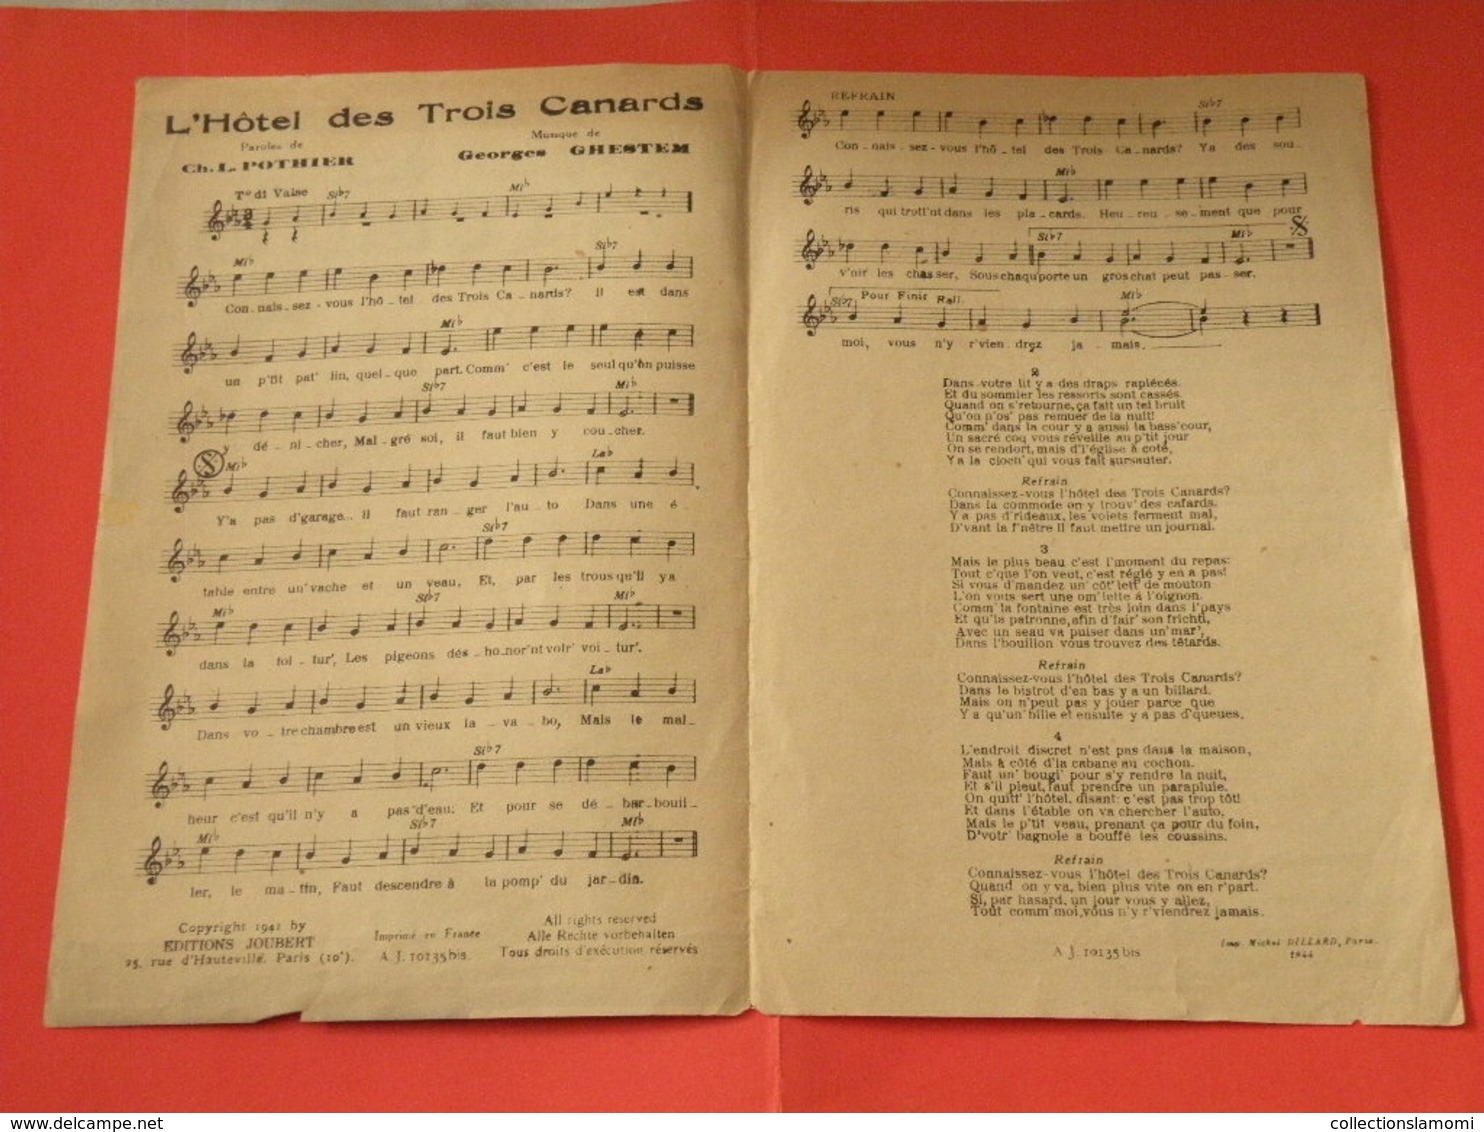 L'Hôtel des Trois Canards
Paroles de
Ch. L. POTHIER
Musique de
Georges GHESTEM
Tº di Valse
Si♭7 Mi♭
Mi♭ Si♭7
Con_nais_sez-vous l'hô_tel des Trois Ca_nards? Il est dans
Mi♭
un p'tit pat'lin, quel_que part. Comm' c'est le seul qu'on puisse
Si♭7 Mi♭
Y dé_ni_cher, Mal_gré soi, il faut bien y cou_cher.
Mi♭ La♭
Y'a pas d'garage... il faut ran_ger l'au_to Dans une é_
Si♭7
table entre un' vache et un veau, Et, par les trous qu'il y a
Mi♭ Si♭7 Mi♭
dans la toi_tur', Les pigeons dés_ho_nor'nt votr' voi_tur'.
La♭
Dans vo_tre chambre est un vieux la_va_bo, Mais le mal_
Si♭7
heur c'est qu'il n'y a pas d'eau: Et pour se dé_bar_bouil_
Mi♭ Si♭7 Mi♭
ler, le ma_tin, Faut descendre à la pomp' du jar_din.
Copyright 1941 by
EDITIONS JOUBERT
25, rue d'Hauteville. Paris (10ᵉ).
Imprimé en France
A. J. 10135 bis.
All rights reserved
Alle Rechte vorbehalten
Tous droits d'exécution réservés
REFRAIN
Si♭7
Con_nais_sez-vous l'hô_tel des Trois Ca_nards? Ya des sou_
Mi♭
ris qui trott'nt dans les pla_cards. Heu_reu_se_ment que pour
Si♭7 Mi♭
v'nir les chasser, Sous chaqu' porte un gros chat peut pas_ser.
Si♭7 Pour Finir Rall. Mi♭
moi, vous n'y r'vien_drez ja_mais.
2
Dans votre lit y a des draps rapiécés.
Et du sommier les ressorts sont cassés.
Quand on s'retourne, ça fait un tel bruit
Qu'on n'os' pas remuer de la nuit!
Comm' dans la cour y a aussi la bass'cour,
Un sacré coq vous réveille au p'tit jour
On se rendort, mais d'l'église à coté,
Y a la cloch' qui vous fait sursauter.
Refrain
Connaissez-vous l'hôtel des Trois Canards?
Dans la commode on y trouv' des cafards.
Y a pas d'rideaux, les volets ferment mal,
D'vant la f'nêtre il faut mettre un journal.
3
Mais le plus beau c'est l'moment du repas:
Tout c'que l'on veut, c'est réglé y en a pas!
Si vous d'mandez un' côt'lett' de mouton
L'on vous sert une om'lette à l'oignon.
Comm' la fontaine est très loin dans l'pays
Et qu'la patronne, afin d'fair' son frichti,
Avec un seau va puiser dans un' mar',
Dans l'bouillon vous trouvez des têtards.
Refrain
Connaissez-vous l'hôtel des Trois Canards?
Dans le bistrot d'en bas y a un billard.
Mais on n'peut pas y jouer parce que
Y a qu'un' bille et ensuite y a pas d'queues.
4
L'endroit discret n'est pas dans la maison,
Mais à côté d'la cabane au cochon.
Faut un' bougi' pour s'y rendre la nuit,
Et s'il pleut, faut prendre un parapluie.
On quitt' l'hôtel, disant: c'est pas trop tôt!
Et dans l'étable on va chercher l'auto,
Mais le p'tit veau, prenant ça pour du foin,
D'votr' bagnole a bouffé les coussins.
Refrain
Connaissez-vous l'hôtel des Trois Canards?
Quand on y va, bien plus vite on en r'part.
Si, par hasard, un jour vous y allez,
Tout comm' moi, vous n'y r'viendrez jamais.
A. J. 10135 bis
Imp. Michel DILLARD, Paris.
1944
collectionslamomi